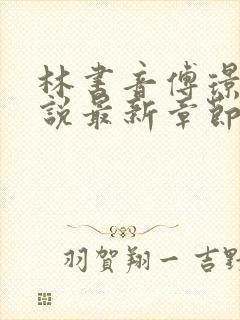 林書音傅璟
說最新章節
羽賀翔一 吉野